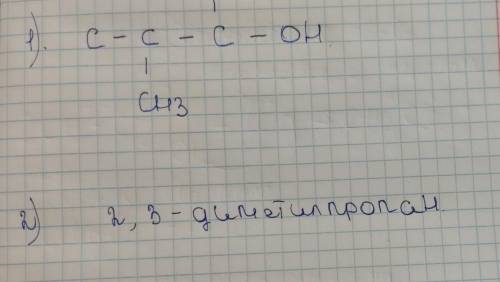 1). C - C - C - OH
CH3
2) 2,3-диметилпропан